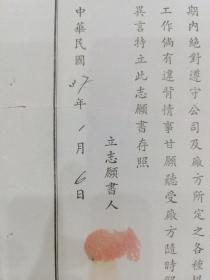 期內絕對遵守公司及廠方所定之各種
工作倘有違背情事甘願聽受廠方隨時
異言特立此志願書存照
立志願書人
中華民國37年1月6日